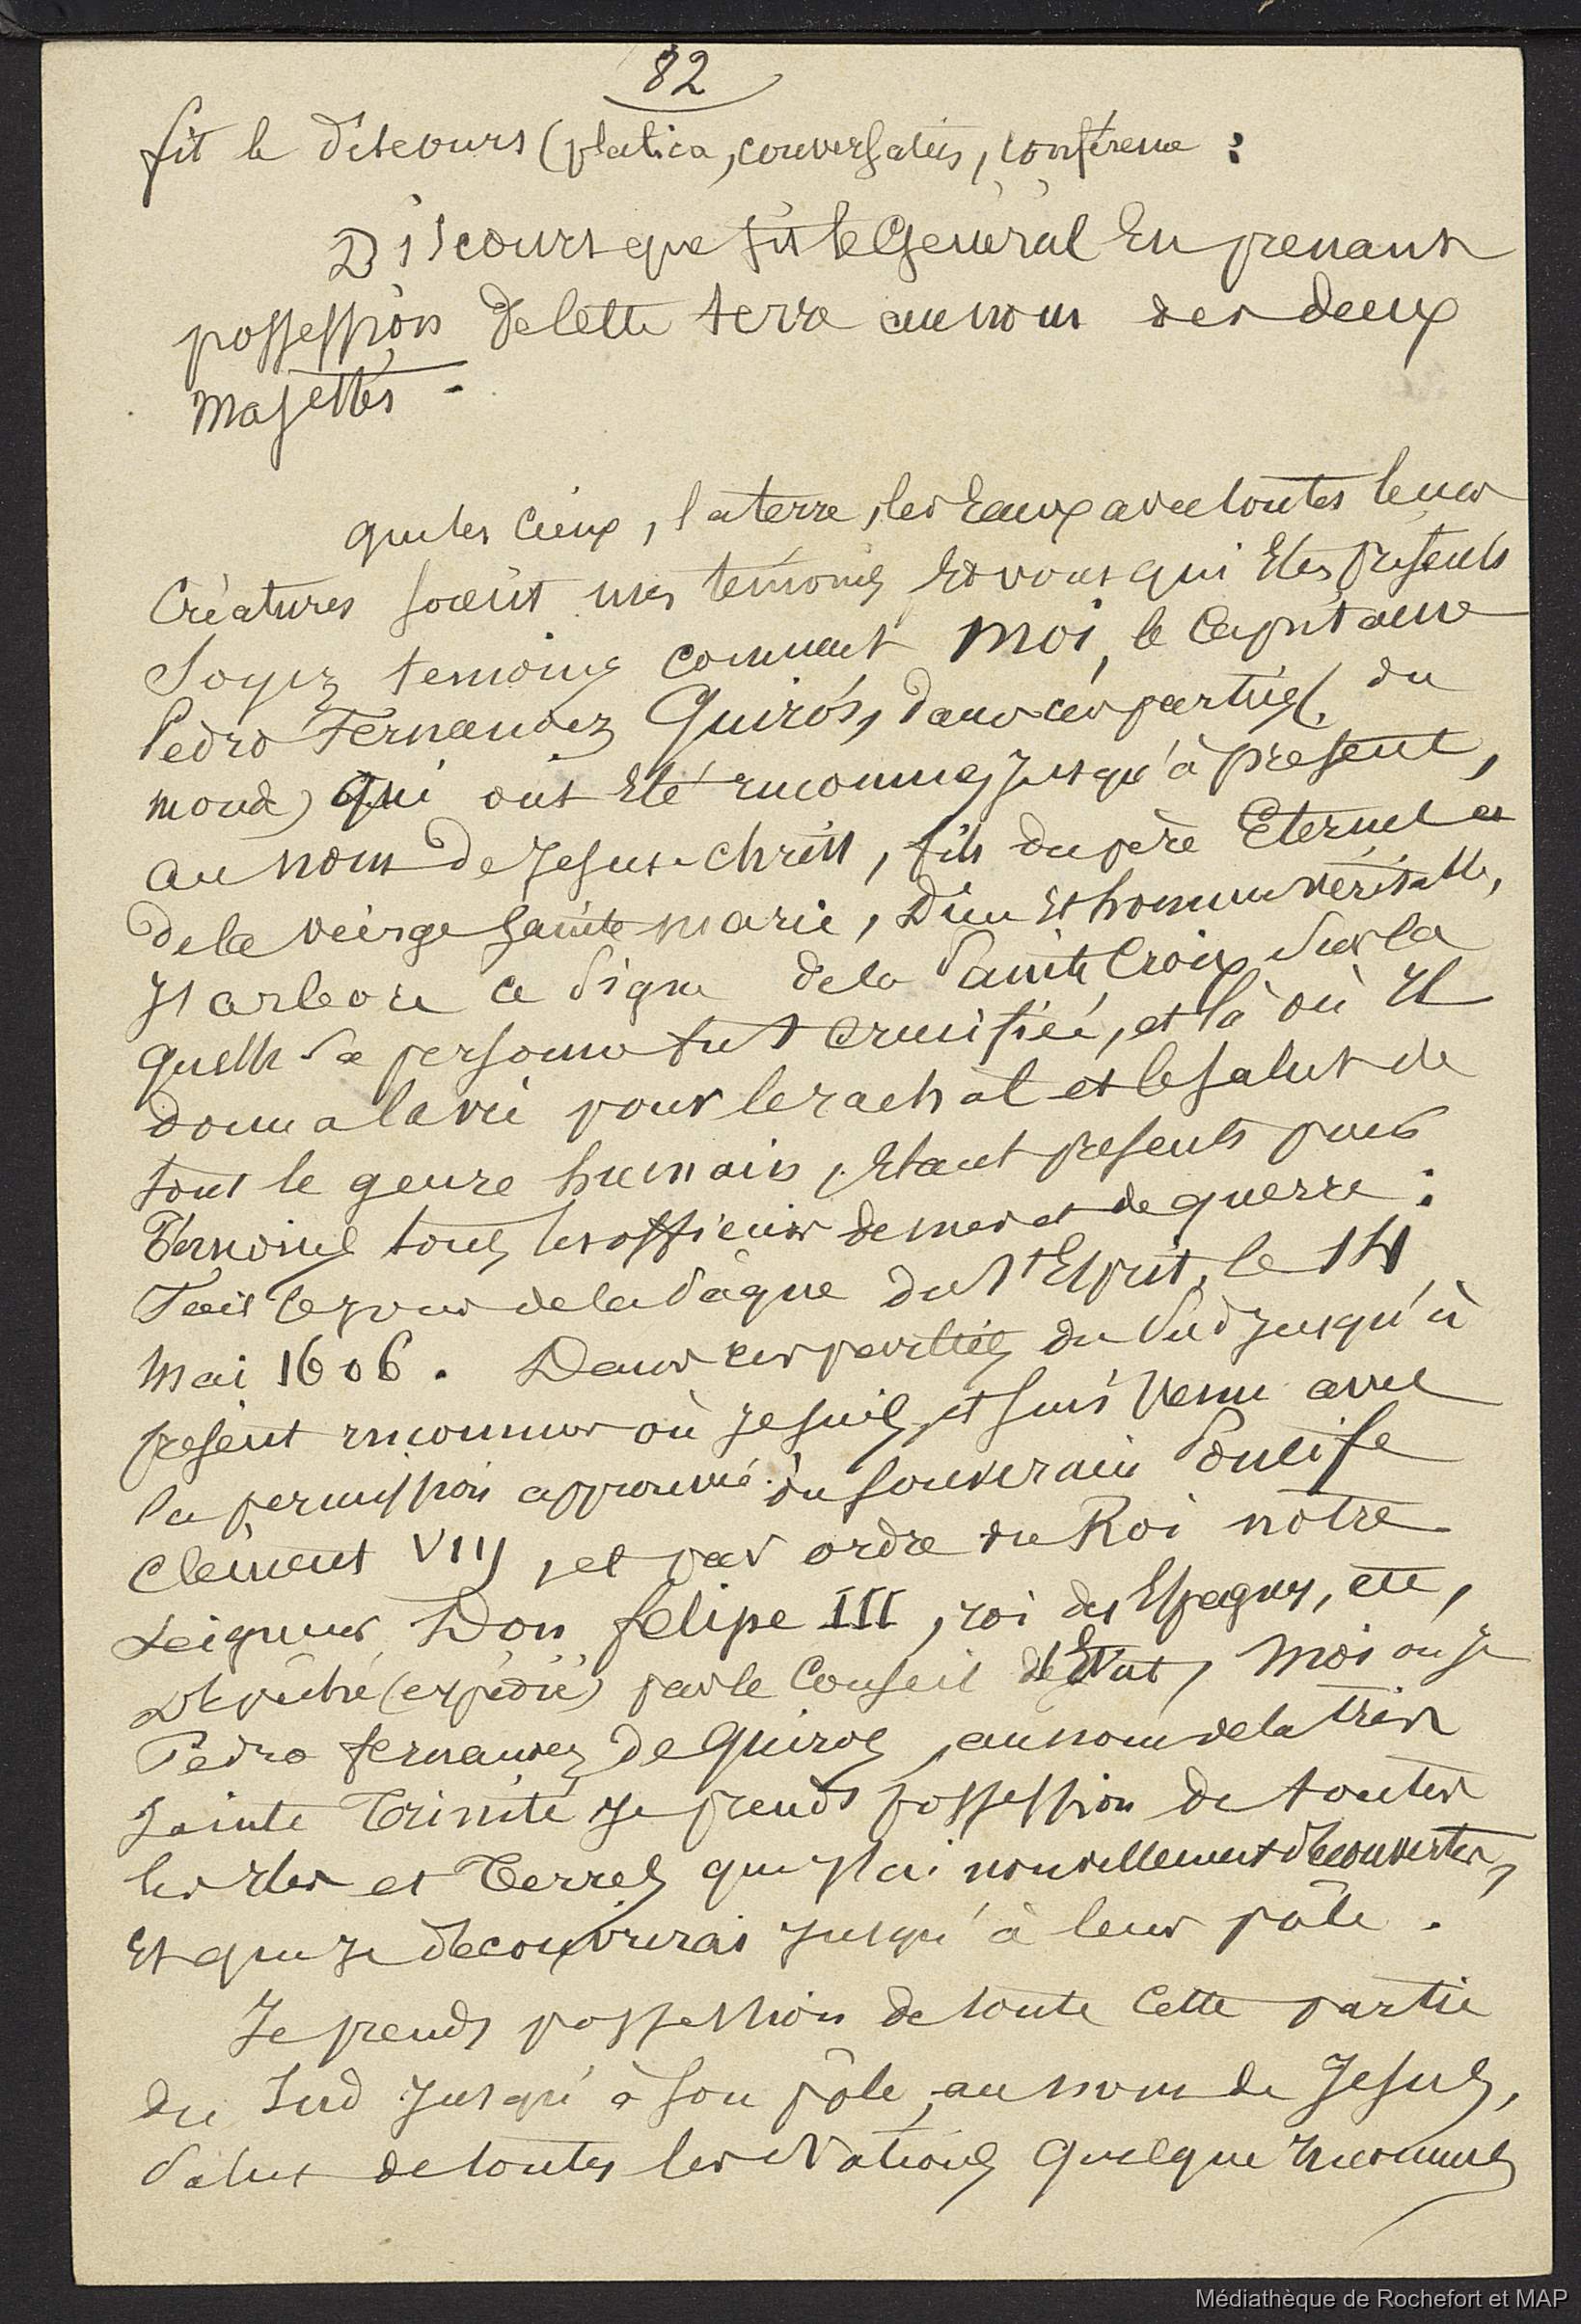 82
fit le discours (platica, conversation, conférence :
Discours que fit le Général En prenant
possession de cette terre au nom des deux
Majestés -
que les Cieux, la terre, les Eaux avec toutes leurs
Créatures soient mes témoins Et vous qui Etes présents
Soyez temoins comment Moi, le Capitaine
Pedro Fernandez Quirós, dans ces parties du
monde) Qui ont Eté inconnues jusqu'à présent,
au nom de Jesus-christ, fils du père Eternel et
de la vierge Sainte marie, Dieu Et homme véritable,
J'arbore ce Signe de la Sainte Croix Sur la
quelle Sa personne fut crucifiée, et là où Il
donna la vie pour le rachat et le salut de
tout le genre humain, Etant présents pour
Témoins tous les officiers de mer et de guerre :
Fait le jour de la Pâque du St Esprit, le 14
Mai 1606. Dans ces parties du Sud jusqu'à
présent inconnues où je suis, et suis Venu avec
la permission approuvée du Souverain Pontife
Clément VIII, et par ordre du Roi notre
Seigneur Don Felipe III, roi des Espagnes, etc,
Dépêché (expédié) par le Conseil d'Etat, Moi ou je
Pedro fernandez de Quiros, au nom de la très
Sainte Trinité Je prends possession de toutes
les Iles et Terres que j'ai nouvellement découvertes,
Et que je découvrirai jusqu'à leur pôle.
Je prends possession de toute Cette partie
du Sud jusqu'à son pôle, au nom de Jesus,
Salut de toutes les Nations quelque Inconnues
Médiathèque de Rochefort et MAP